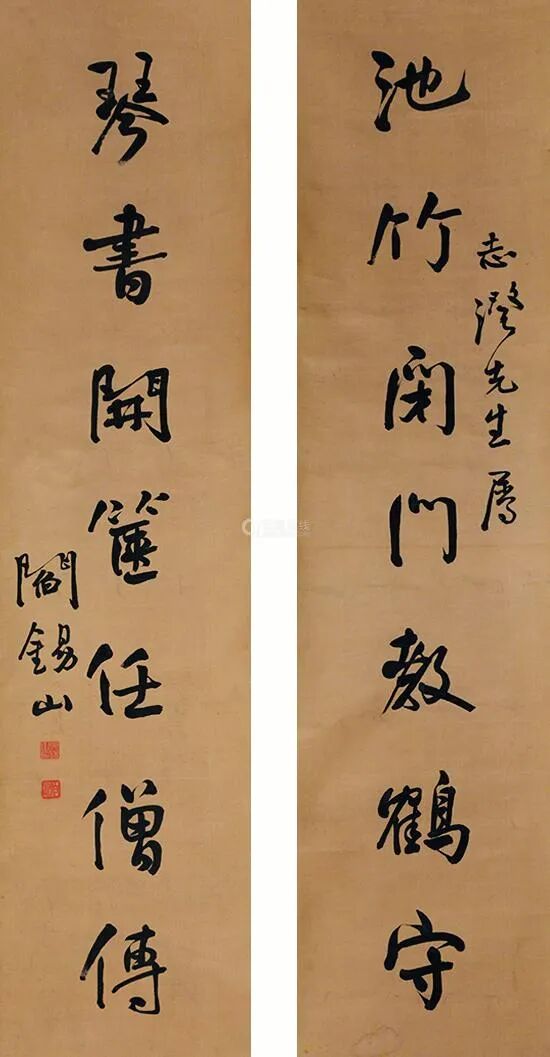 池竹閉門教鶴守
志澄先生属
琴書開篋任僧傳
閻錫山